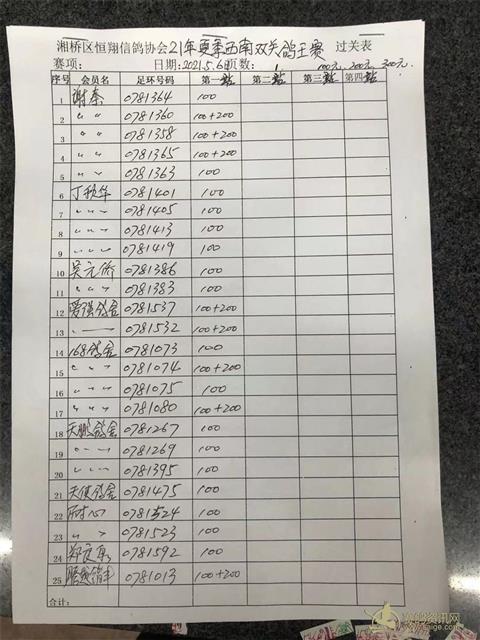 湘桥区恒翔信鸽协会21年夏季西南双关鸽王赛 过关表
赛项: 日期:2021.5.6 页数: 1 100元,200元,300元
序号 会员名 足环号码 第一站 第二站 第三站 第四站
1 谢泰 0781364 100
2 〃 〃 0781360 100+200
3 〃 〃 0781358 100+200
4 〃 〃 0781365 100+200
5 〃 〃 0781363 100
6 丁秋华 0781401 100
7 〃 〃 〃 0781405 100
8 〃 〃 〃 0781413 100
9 〃 〃 〃 0781419 100
10 吴元侨 0781386 100
11 〃 〃 〃 0781383 100
12 爱强鸽舍 0781537 100+200
13 〃 —— 0781532 100+200
14 168鸽舍 0781073 100
15 〃 〃 〃 0781074 100+200
16 〃 〃 〃 0781075 100
17 〃 〃 〃 0781080 100+200
18 天鹏鸽舍 0781267 100
19 〃 — 〃 0781269 100
20 〃 〃 〃 0781395 100
21 天使鸽舍 0781475 100
22 耐心 0781524 100
23 〃 〃 0781523 100
24 0781592 100
25 0781013 100+200
合计: